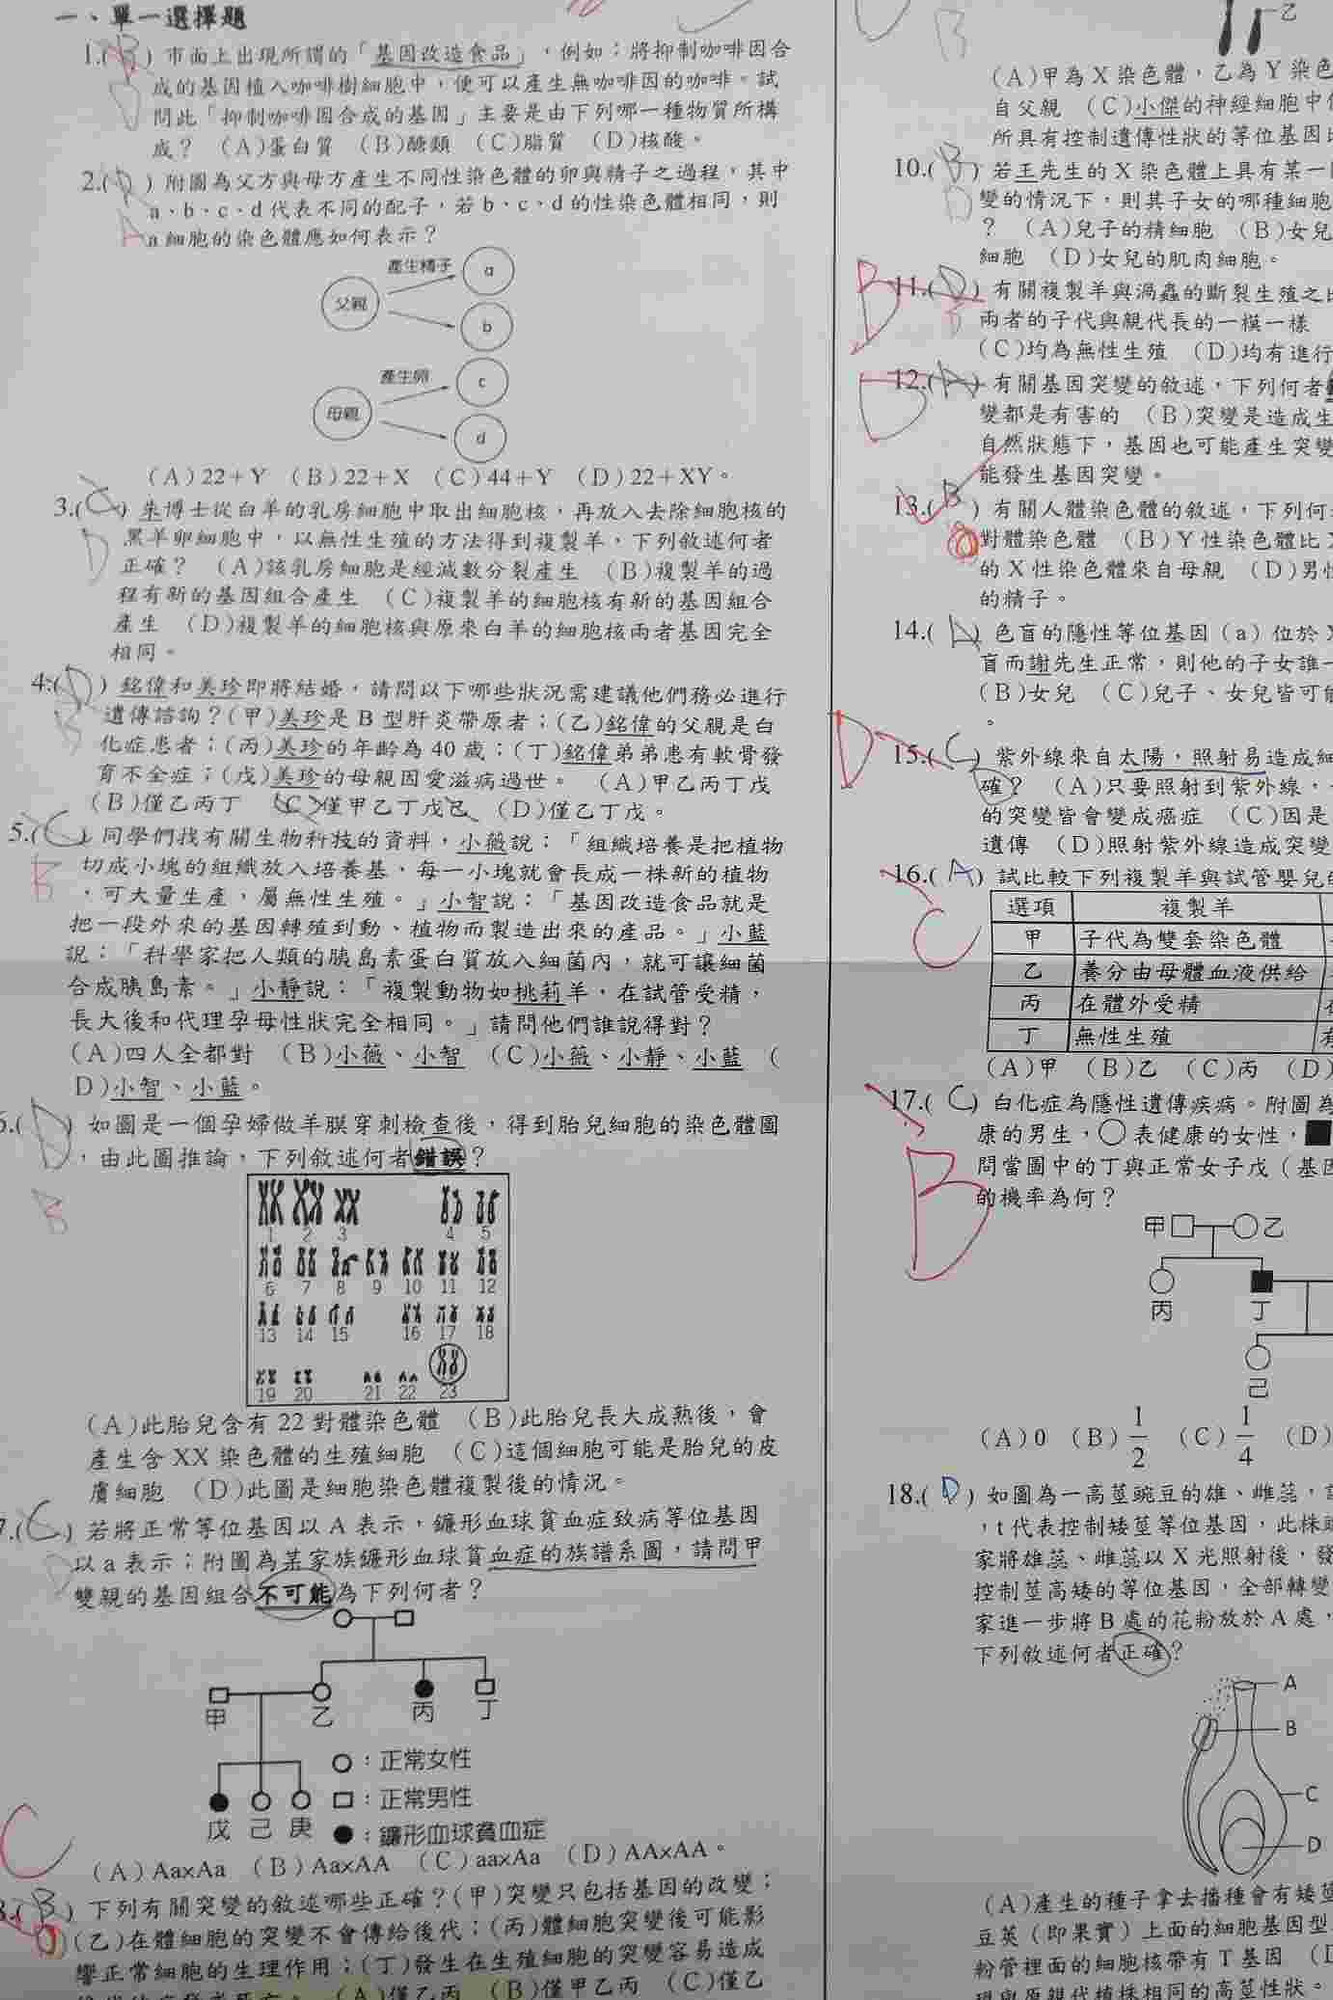 一、單一選擇題
1.(B) 市面上出現所謂的「基因改造食品」，例如：將抑制咖啡因合
D
成的基因植入咖啡樹細胞中，便可以產生無咖啡因的咖啡。試
問此「抑制咖啡因合成的基因」主要是由下列哪一種物質所構
成？ (A)蛋白質 (B)醣類 (C)脂質 (D)核酸。
2.( ) 附圖為父方與母方產生不同性染色體的卵與精子之過程，其中
a、b、c、d代表不同的配子，若b、c、d的性染色體相同，則
A
a細胞的染色體應如何表示？
產生精子
父親
a
b
產生卵
母親
c
d
(A)22+Y (B)22+X (C)44+Y (D)22+XY。
3.(C) 朱博士從白羊的乳房細胞中取出細胞核，再放入去除細胞核的
黑羊卵細胞中，以無性生殖的方法得到複製羊，下列敘述何者
D
正確？ (A)該乳房細胞是經減數分裂產生 (B)複製羊的過
程有新的基因組合產生 (C)複製羊的細胞核有新的基因組合
產生 (D)複製羊的細胞核與原來白羊的細胞核兩者基因完全
相同。
4.(D) 銘偉和美珍即將結婚，請問以下哪些狀況需建議他們務必進行
B
遺傳諮詢？(甲)美珍是B型肝炎帶原者；(乙)銘偉的父親是白
化症患者；(丙)美珍的年齡為40歲；(丁)銘偉弟弟患有軟骨發
育不全症；(戊)美珍的母親因愛滋病過世。 (A)甲乙丙丁戊
(B)僅乙丙丁 (C)僅甲乙丁戊己 (D)僅乙丁戊。
5.(C) 同學們找有關生物科技的資料，小薇說：「組織培養是把植物
B
切成小塊的組織放入培養基，每一小塊就會長成一株新的植物
，可大量生產，屬無性生殖。」小智說：「基因改造食品就是
把一段外來的基因轉殖到動、植物而製造出來的產品。」小藍
說：「科學家把人類的胰島素蛋白質放入細菌內，就可讓細菌
合成胰島素。」小靜說：「複製動物如桃莉羊，在試管受精，
長大後和代理孕母性狀完全相同。」請問他們誰說得對？
(A)四人全都對 (B)小薇、小智 (C)小薇、小靜、小藍 (
D)小智、小藍。
6.(D) 如圖是一個孕婦做羊膜穿刺檢查後，得到胎兒細胞的染色體圖
，由此圖推論，下列敘述何者錯誤？
B
1 2 3 4 5
6 7 8 9 10 11 12
13 14 15 16 17 18
19 20 21 22 23
(A)此胎兒含有22對體染色體 (B)此胎兒長大成熟後，會
產生含XX染色體的生殖細胞 (C)這個細胞可能是胎兒的皮
膚細胞 (D)此圖是細胞染色體複製後的情況。
7.(C) 若將正常等位基因以A表示，鐮形血球貧血症致病等位基因
以a表示；附圖為某家族鐮形血球貧血症的族譜系圖，請問甲
D
雙親的基因組合不可能為下列何者？
甲 乙 丙 丁
戊 己 庚
○：正常女性
□：正常男性
●：鐮形血球貧血症
C
(A)Aa×Aa (B)Aa×AA (C)aa×Aa (D)AA×AA。
8.(B) 下列有關突變的敘述哪些正確？(甲)突變只包括基因的改變；
(乙)在體細胞的突變不會傳給後代；(丙)體細胞突變後可能影
響正常細胞的生理作用；(丁)發生在生殖細胞的突變容易造成
(A)僅乙丙 (B)僅甲乙丙 (C)僅乙
B
乙
(A)甲為X染色體，乙為Y染色
自父親 (C)小傑的神經細胞中
所具有控制遺傳性狀的等位基因
10.(B) 若王先生的X染色體上具有某一
D
變的情況下，則其子女的哪種細胞
？ (A)兒子的精細胞 (B)女兒
細胞 (D)女兒的肌肉細胞。
B
11.(D) 有關複製羊與渦蟲的斷裂生殖之
B
兩者的子代與親代長的一模一樣
(C)均為無性生殖 (D)均有進行
D
12.(A) 有關基因突變的敘述，下列何者
變都是有害的 (B)突變是造成生
自然狀態下，基因也可能產生突變
能發生基因突變。
13.(B) 有關人體染色體的敘述，下列何
對體染色體 (B)Y性染色體比
的X性染色體來自母親 (D)男
的精子。
14.( ) 色盲的隱性等位基因（a）位於
盲而謝先生正常，則他的子女誰
(B)女兒 (C)兒子、女兒皆可能
。
D
15.(C) 紫外線來自太陽，照射易造成細
確？ (A)只要照射到紫外線，
的突變皆會變成癌症 (C)因是
遺傳 (D)照射紫外線造成突變
16.(A) 試比較下列複製羊與試管嬰兒的
C
選項 複製羊
甲 子代為雙套染色體
乙 養分由母體血液供給
丙 在體外受精
丁 無性生殖
(A)甲 (B)乙 (C)丙 (D)
17.(C) 白化症為隱性遺傳疾病。附圖為
康的男生，○表健康的女性，■
B
問當圖中的丁與正常女子戊（基因
的機率為何？
甲 乙
丙 丁
己
(A)0 (B)1/2 (C)1/4 (D)
18.(D) 如圖為一高莖豌豆的雄、雌蕊，
，t代表控制矮莖等位基因，此株
家將雄蕊、雌蕊以X光照射後，發
控制莖高矮的等位基因，全部轉變
家進一步將B處的花粉放於A處，
下列敘述何者正確？
A
B
C
D
(A)產生的種子拿去播種會有矮莖
豆莢（即果實）上面的細胞基因型
粉管裡面的細胞核帶有T基因
現與原親代植株相同的高莖性狀。